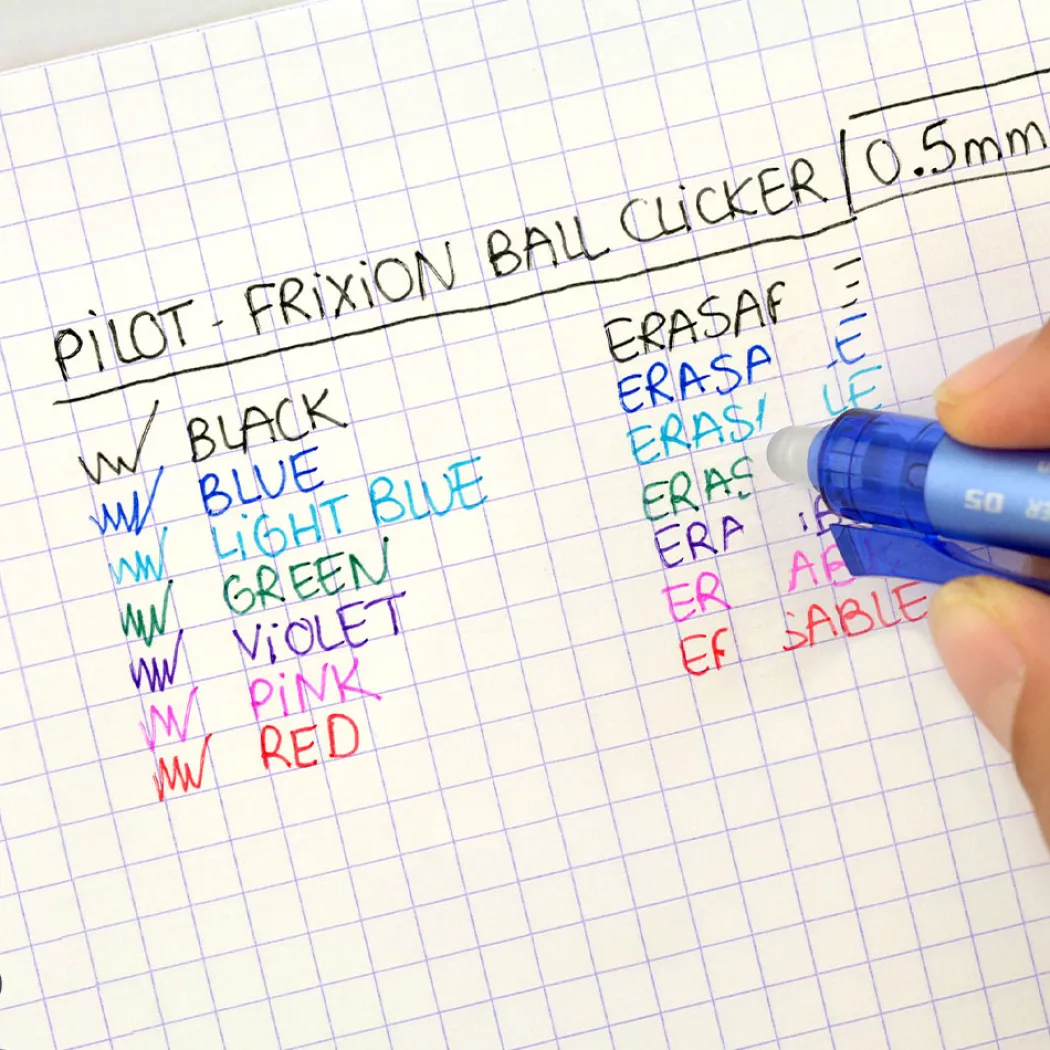 PiLOT - FRiXiON BALL CLiCKER 0.5mm
BLACK
BLUE
LiGHT BLUE
GREEN
ViOLET
PiNK
RED
ERASA E
ERASA E
ERAS LE
ERAS
ERA
ER AB
E SABLE
05